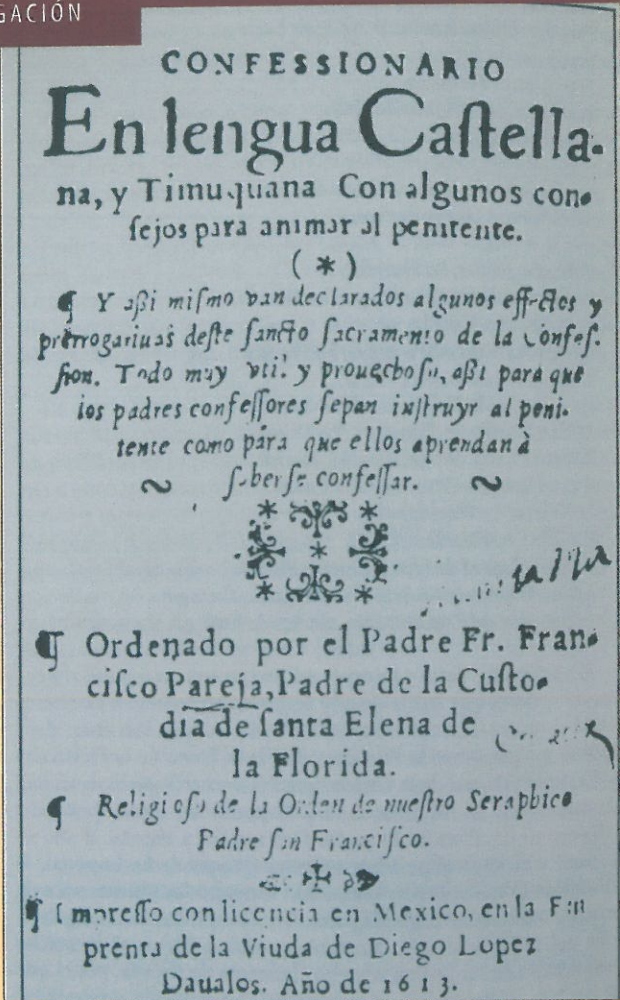 GACIÓN
CONFESSIONARIO
En lengua Caſtella-
na, y Timuquana Con algunos con-
ſejos para animar al penitente.
(*)
¶ Y aßi miſmo van declarados algunos effectos y
prerrogatiuas deſte ſancto ſacramento de la Confeſ-
ſion. Todo muy vtil y prouechoſo, aßi para que
los padres confeſſores ſepan inſtruyr al peni-
tente como para que ellos aprendan à
ſaberſe confeſſar.
¶ Ordenado por el Padre Fr. Fran-
ciſco Pareja, Padre de la Cuſto-
dia de ſanta Elena de
la Florida.
¶ Religioſo de la Orden de nueſtro Seraphico
Padre ſan Franciſco.
¶ Impreſſo con licencia en Mexico, en la Em
prenta de la Viuda de Diego Lopez
Daualos. Año de 1613.